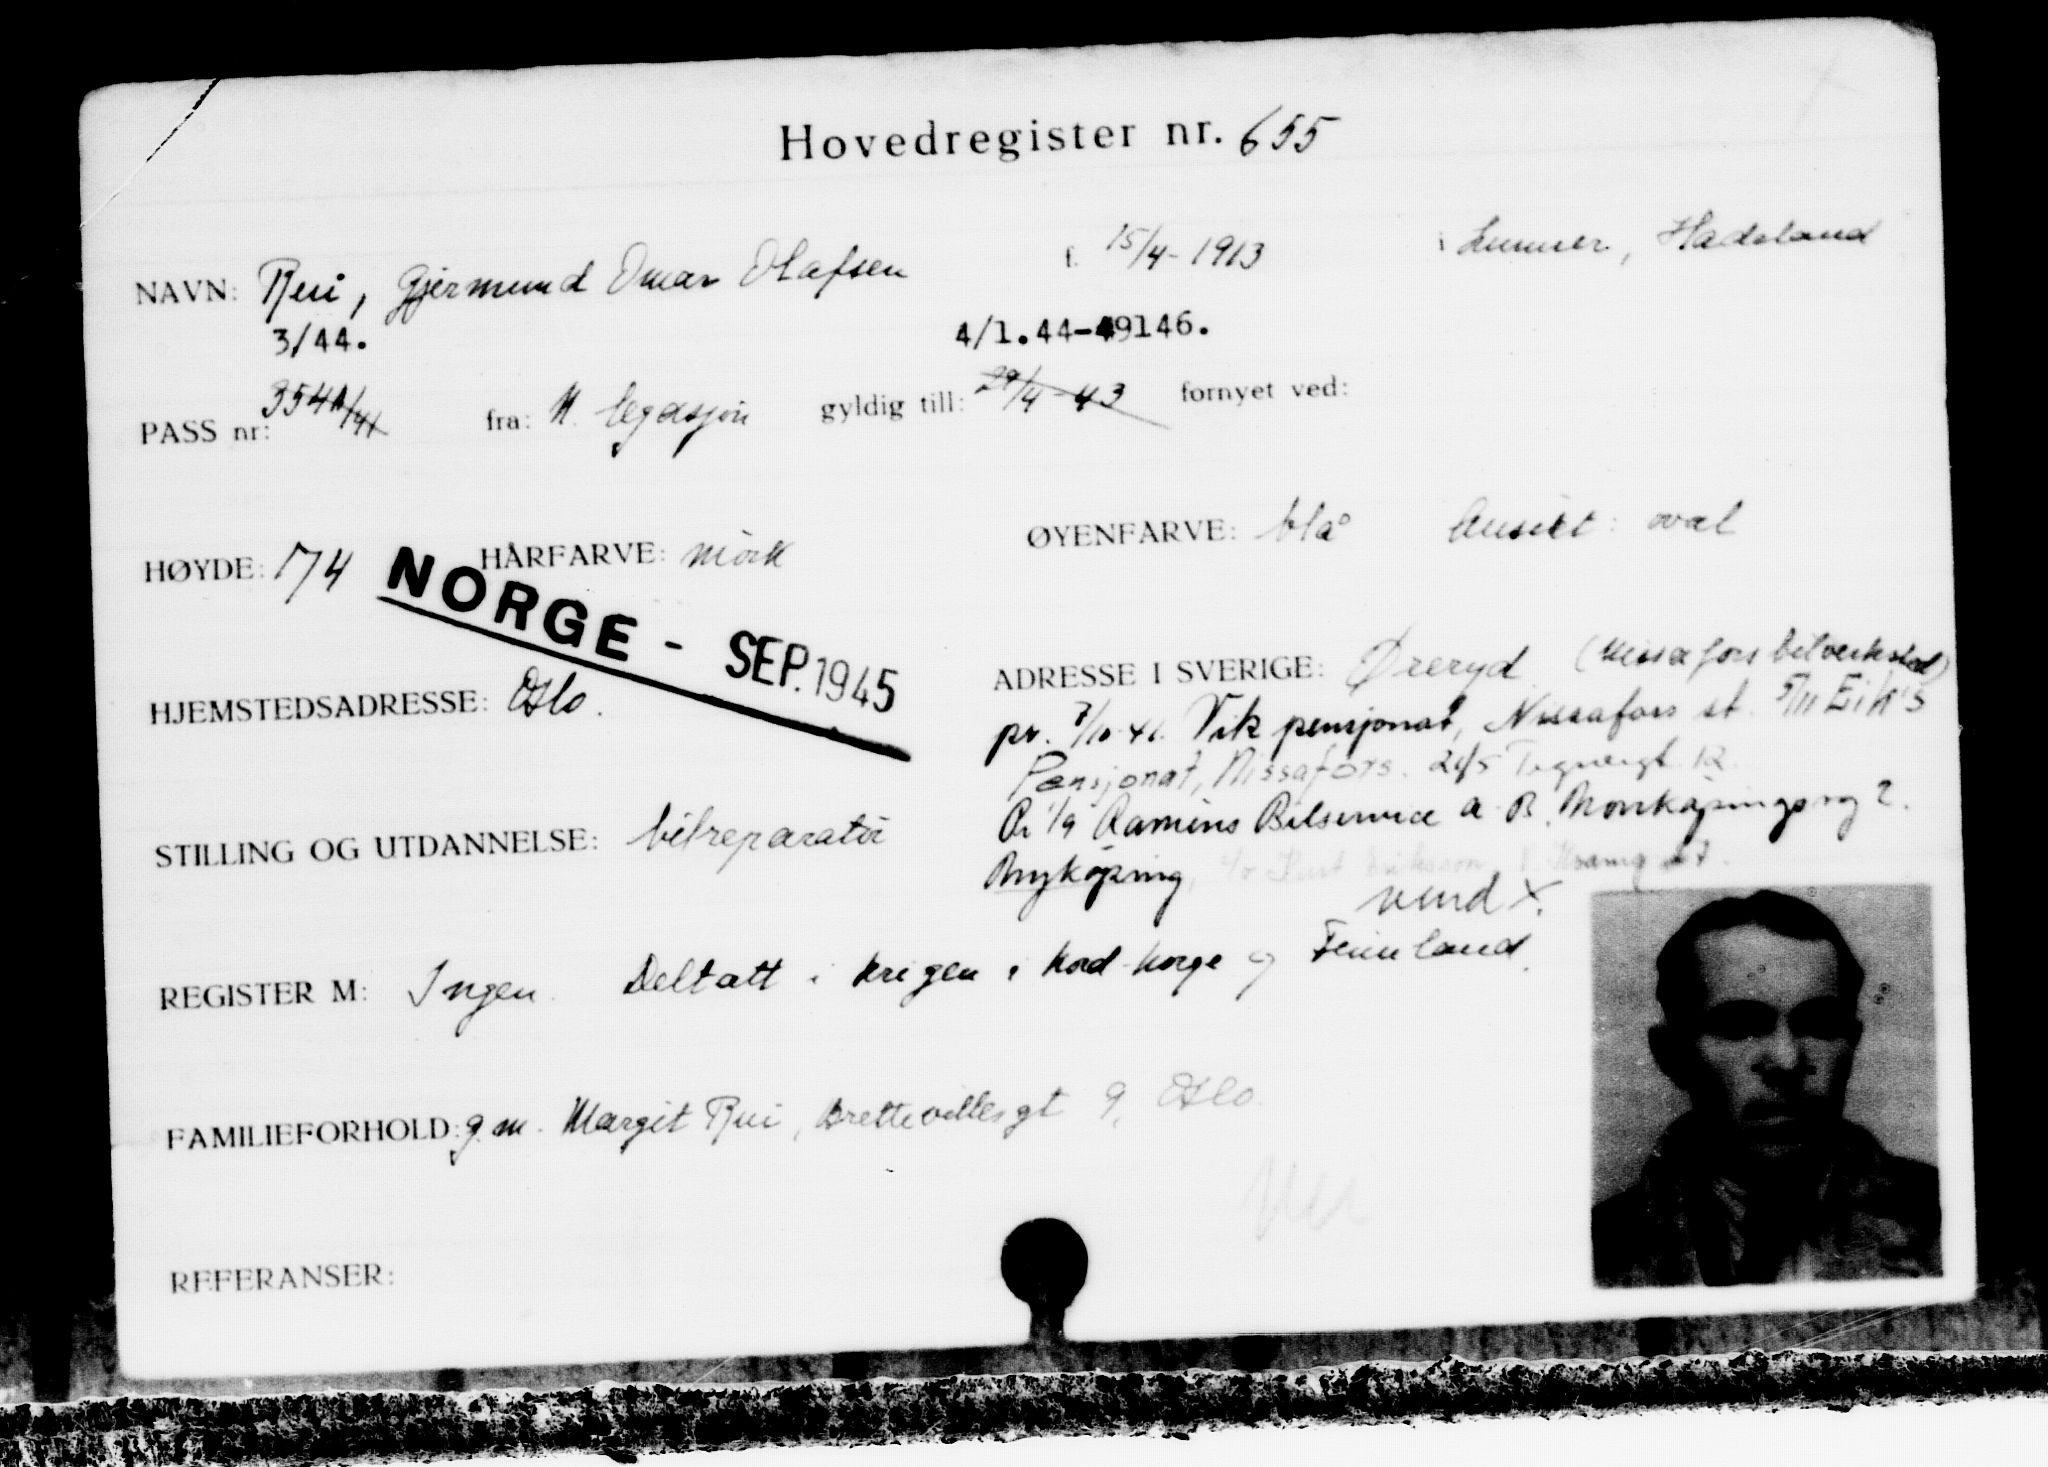 Hovedregister nr. 655
NAVN: Rui, Gjermund Omar Olafsen f. 15/4-1913 i Lunner, Hadeland
3/44. 4/1.44-49146.
PASS nr: 354A/41 fra: N. legasjon gyldig till: 29/4-43 fornyet ved:
HØYDE: 174 HÅRFARVE: mørk ØYENFARVE: blå Ansikt: oval
NORGE - SEP. 1945
HJEMSTEDSADRESSE: Oslo. ADRESSE I SVERIGE: Øreryd (Nissafors bilverksted)
pr. 7/10 41. Vik pensjonat, Nissafors st. 5/11 Eik's
Pensjonat, Nissafors. 26/5 Tegnergt. 12.
STILLING OG UTDANNELSE: bilreparatør Pr 1/9 Ramens Bilservice A.B. Norrköpingsvg 2.
Nyköping, c/o Kurt Eriksson,
vend x.
REGISTER M: Ingen. Deltatt i krigen i Nord-Norge og Finnland.
FAMILIEFORHOLD: g.m. Margit Rui, Brettevillesgt 9, Oslo.
Nei
REFERANSER: